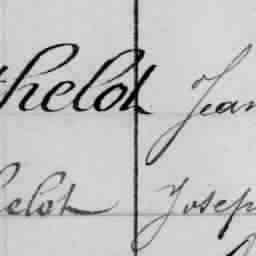 thelot Jean
helot Josep